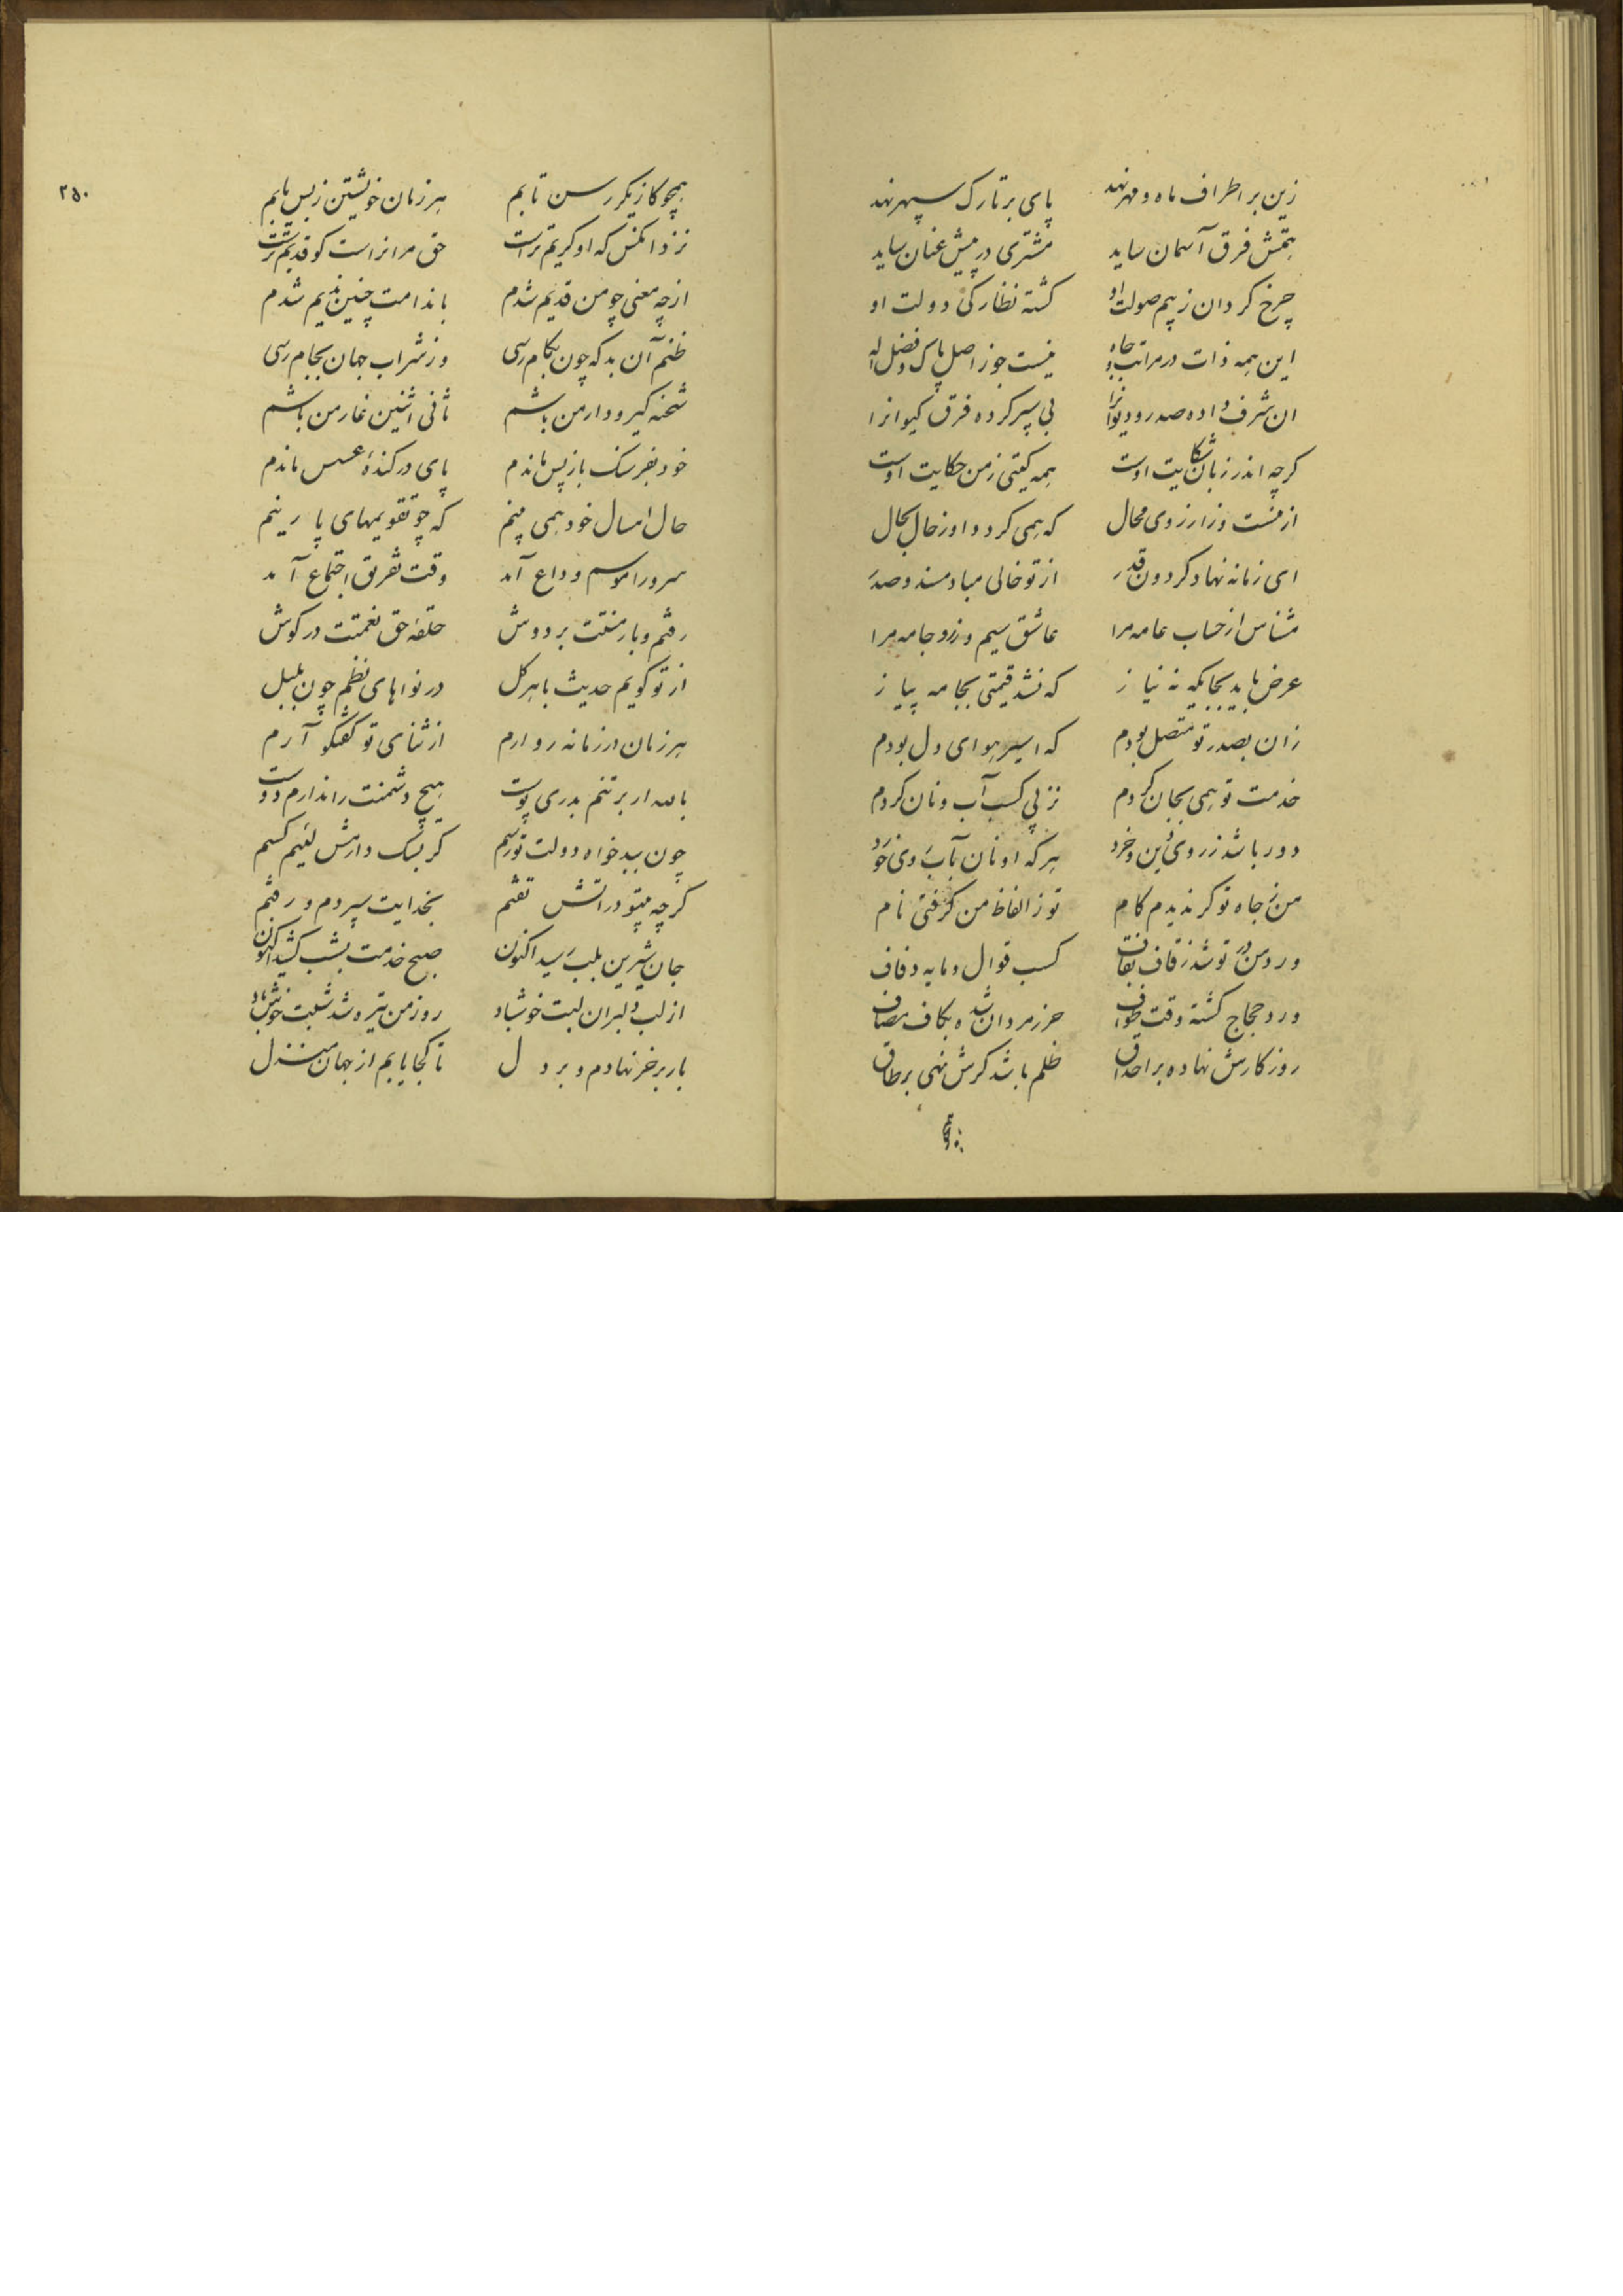 زین بر اطراف ماه و مهر نهد پای بر تارک سپهر نهد
همتش فرق آسمان ساید مشتری در پیش عنان ساید
چرخ کردان ز بیم صولت او کشته نظارکی دولت او
این همه ذات در مراتب و جاه نیست جوز اصل پاک و فضل اله
ان شرف داده صدر و دیوانرا پی سپر کرده فرق کیوانرا
کرچه اندر زبان شکایت اوست همه کیتی زمن حکایت اوست
از منست وز ارزوی محال که همی کردد اوز حال بحال
ای زمانه نهاد کردون قدر از تو خالی مباد مسند و صدر
مشناس از حساب عامه مرا عاشق سیم و زر و جامه مرا
عرض باید بجایکه نه نیاز که نشد قیمتی بجامه پیاز
زان بصدر تو متصل بودم که اسیر هوای دل بودم
خدمت تو همی بجان کردم نز پی کسب آب و نان کردم
دور باشد ز روی دین و خرد هر که او نان بآب روی خورد
من ز جاه تو کر ندیدم کام تو ز الفاظ من کرفتی نام
ورد من در تو شد ز قاف بقاف کسب قوال و مایه دفاف
ورد حجاج کشته وقت طواف حرز مردان شده بکاف مصاف
روزکارش نهاده بر احداق ظلم باشد کرش نهی بر طاق
۲۵۰
همچو کازیکر رسن تابم هر زمان خویشتن ز پس یابم
نزد انکس که او کریم تر است حق مر انراست کو قدیم تر است
از چه معنی چو من قدیم شدم با ندامت چنین ندیم شدم
ظنم آن بد که چون بکام رسی وز شراب جهان بجام رسی
شحنه کیر و دار من باشم ثانی اثنین غار من باشم
خود بفرسنک باز پس ماندم پای در کندهٔ عسس ماندم
حال امسال خود همی بینم که چو تقویمهای پارینم
سرورا موسم وداع آمد وقت تفریق اجتماع آمد
رفتم و بار منتت بر دوش حلقه حق نعمتت در کوش
از تو کویم حدیث با هر کل در نواهای نظم چون بلبل
هر زمان در زمانه رو ارم از ثنای تو کفتکو آرم
بالله ار بر تنم بدری پوست هیچ دشمنت را ندارم دوست
چون ببدخواه دولت تو رسم کر بسک دارمش لئیم کسم
کرچه بیتو در اتش تفتم بخدایت سپردم و رفتم
جان شیرین بلب رسید اکنون صبح خدمت بشب کشید اکنون
از لب دلبران لبت خوش باد روز من تیره شد شبت خوش باد
بار بر خر نهادم و بر دل تا کجا یابم از جهان منزل